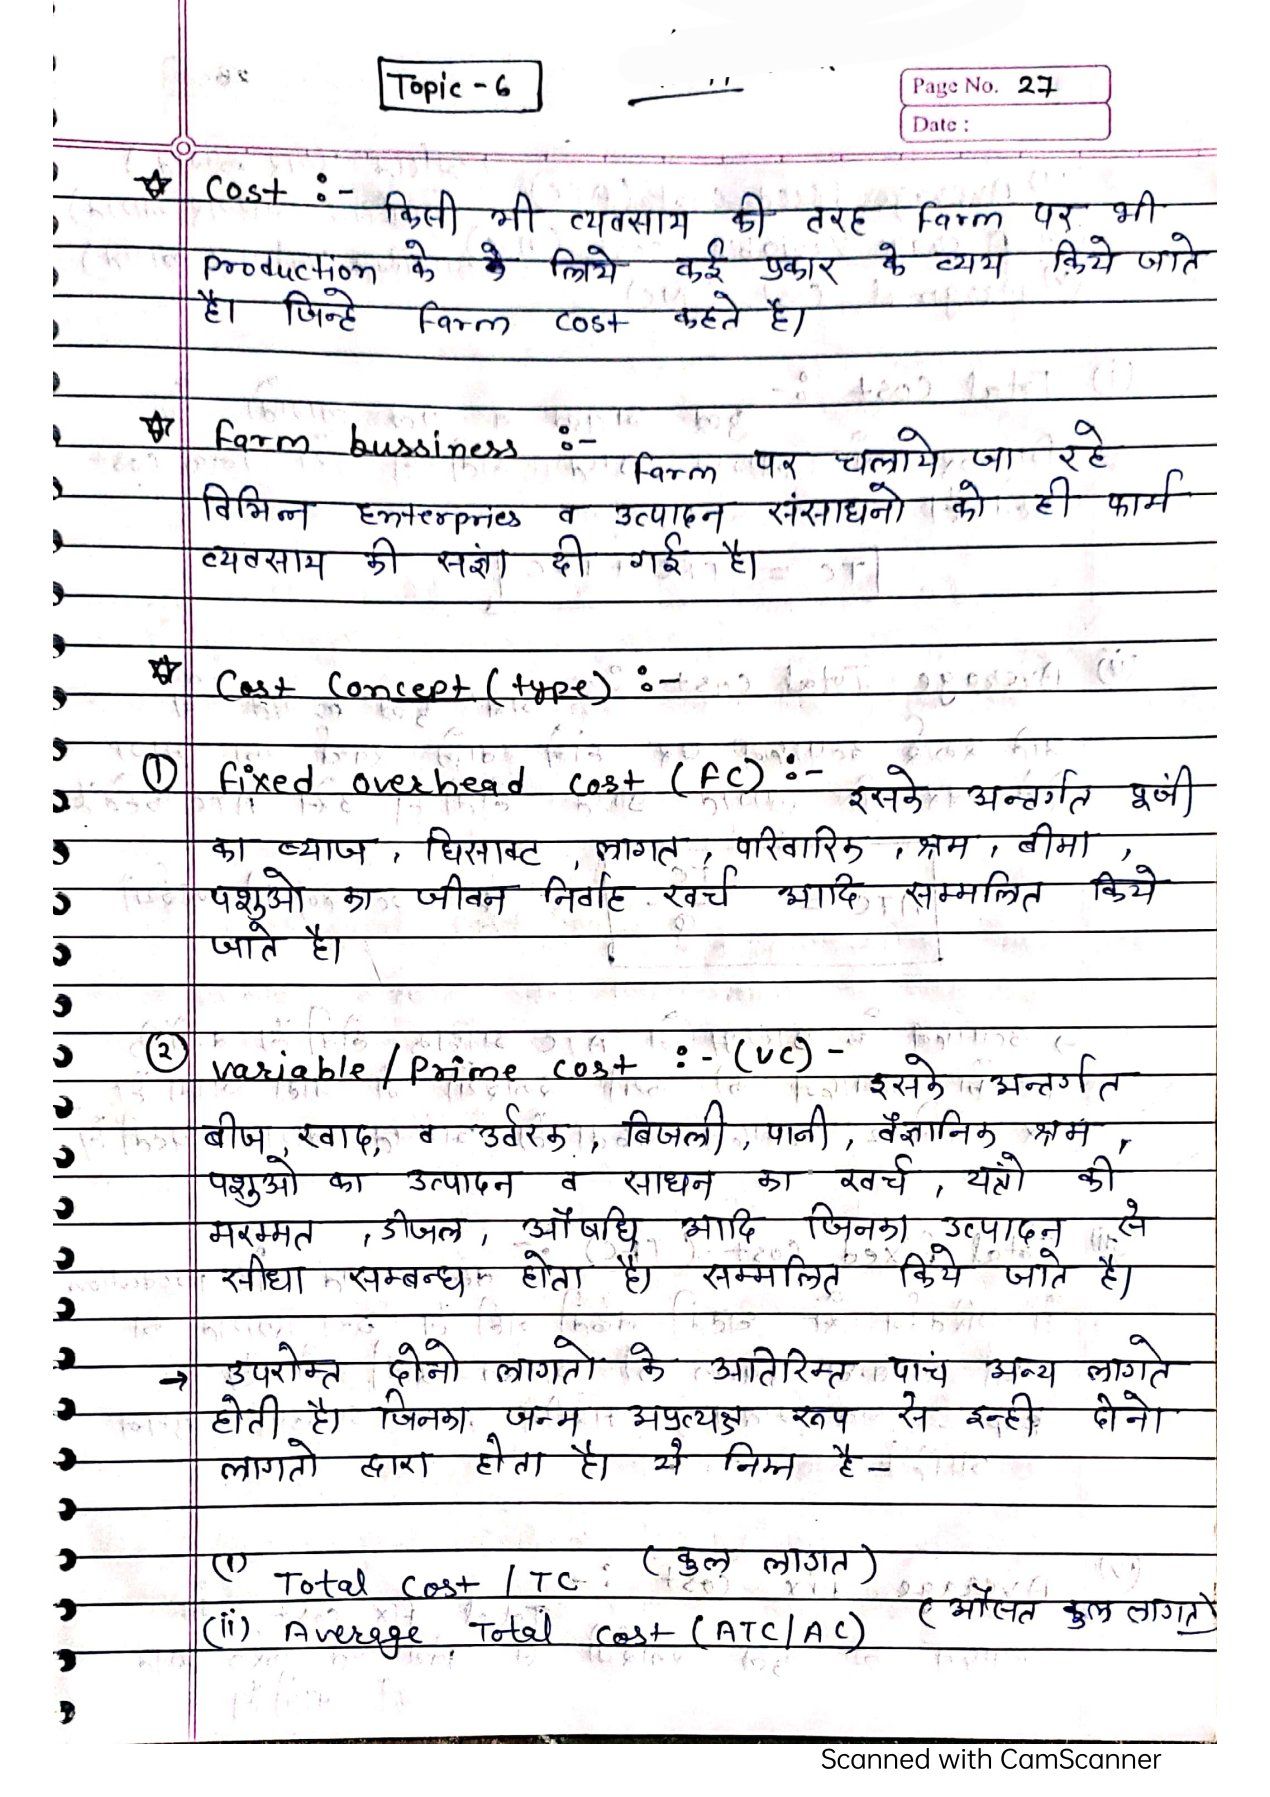 Topic - 6
Page No. 27
Date :
☆ Cost :- किसी भी व्यवसाय की तरह Farm पर भी
production के लिये कई प्रकार के व्यय किये जाते
है। जिन्हे Farm cost कहते है।
☆ Farm bussiness :- Farm पर चलाये जा रहे
विभिन्न Enterpries व उत्पादन संसाधनो को ही फार्म
व्यवसाय की सज्ञां दी गई है।
☆ Cost Concept (type) :-
① Fixed overhead cost (FC) :- इसके अन्तर्गत पूंजी
का ब्याज, घिसावट, लागत, पारिवारिक, श्रम, बीमा,
पशुओ का जीवन निर्वाह खर्च आदि सम्मलित किये
जाते है।
② variable / Prime cost :- (VC) - इसके अन्तर्गत
बीज, खाद, व उर्वरक, बिजली, पानी, वैज्ञानिक श्रम,
पशुओ का उत्पादन व साधन का खर्च, यंत्रो की
मरम्मत, डीजल, औषधि आदि जिनका उत्पादन से
सीधा सम्बन्ध होता है। सम्मलित किये जाते है।
→ उपरोक्त दोनो लागतो के अतिरिक्त पाचं अन्य लागते
होती है। जिनका जन्म अप्रत्यक्ष रूप से इन्ही दोनो
लागतो द्वारा होता है। ये निम्न है -
(i) Total Cost / TC (कुल लागत)
(ii) Average Total cost (ATC/AC) (औसत कुल लागत)
Scanned with CamScanner